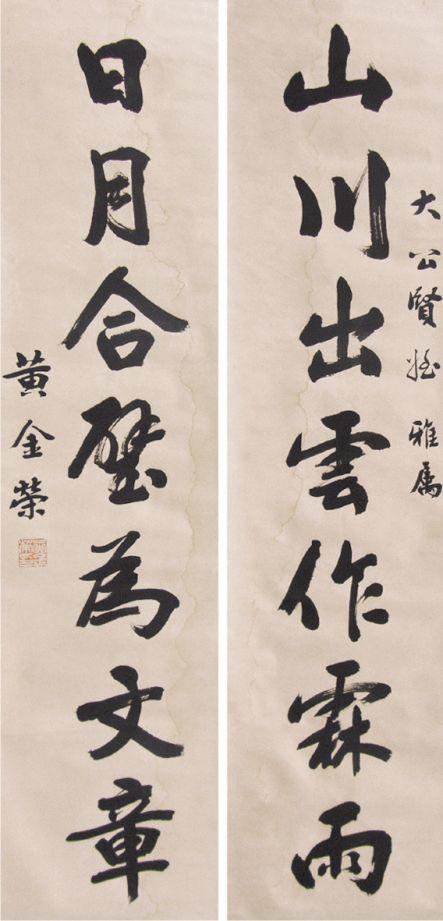 大公賢姪雅属
山川出雲作霖雨
日月合璧為文章
黃金榮